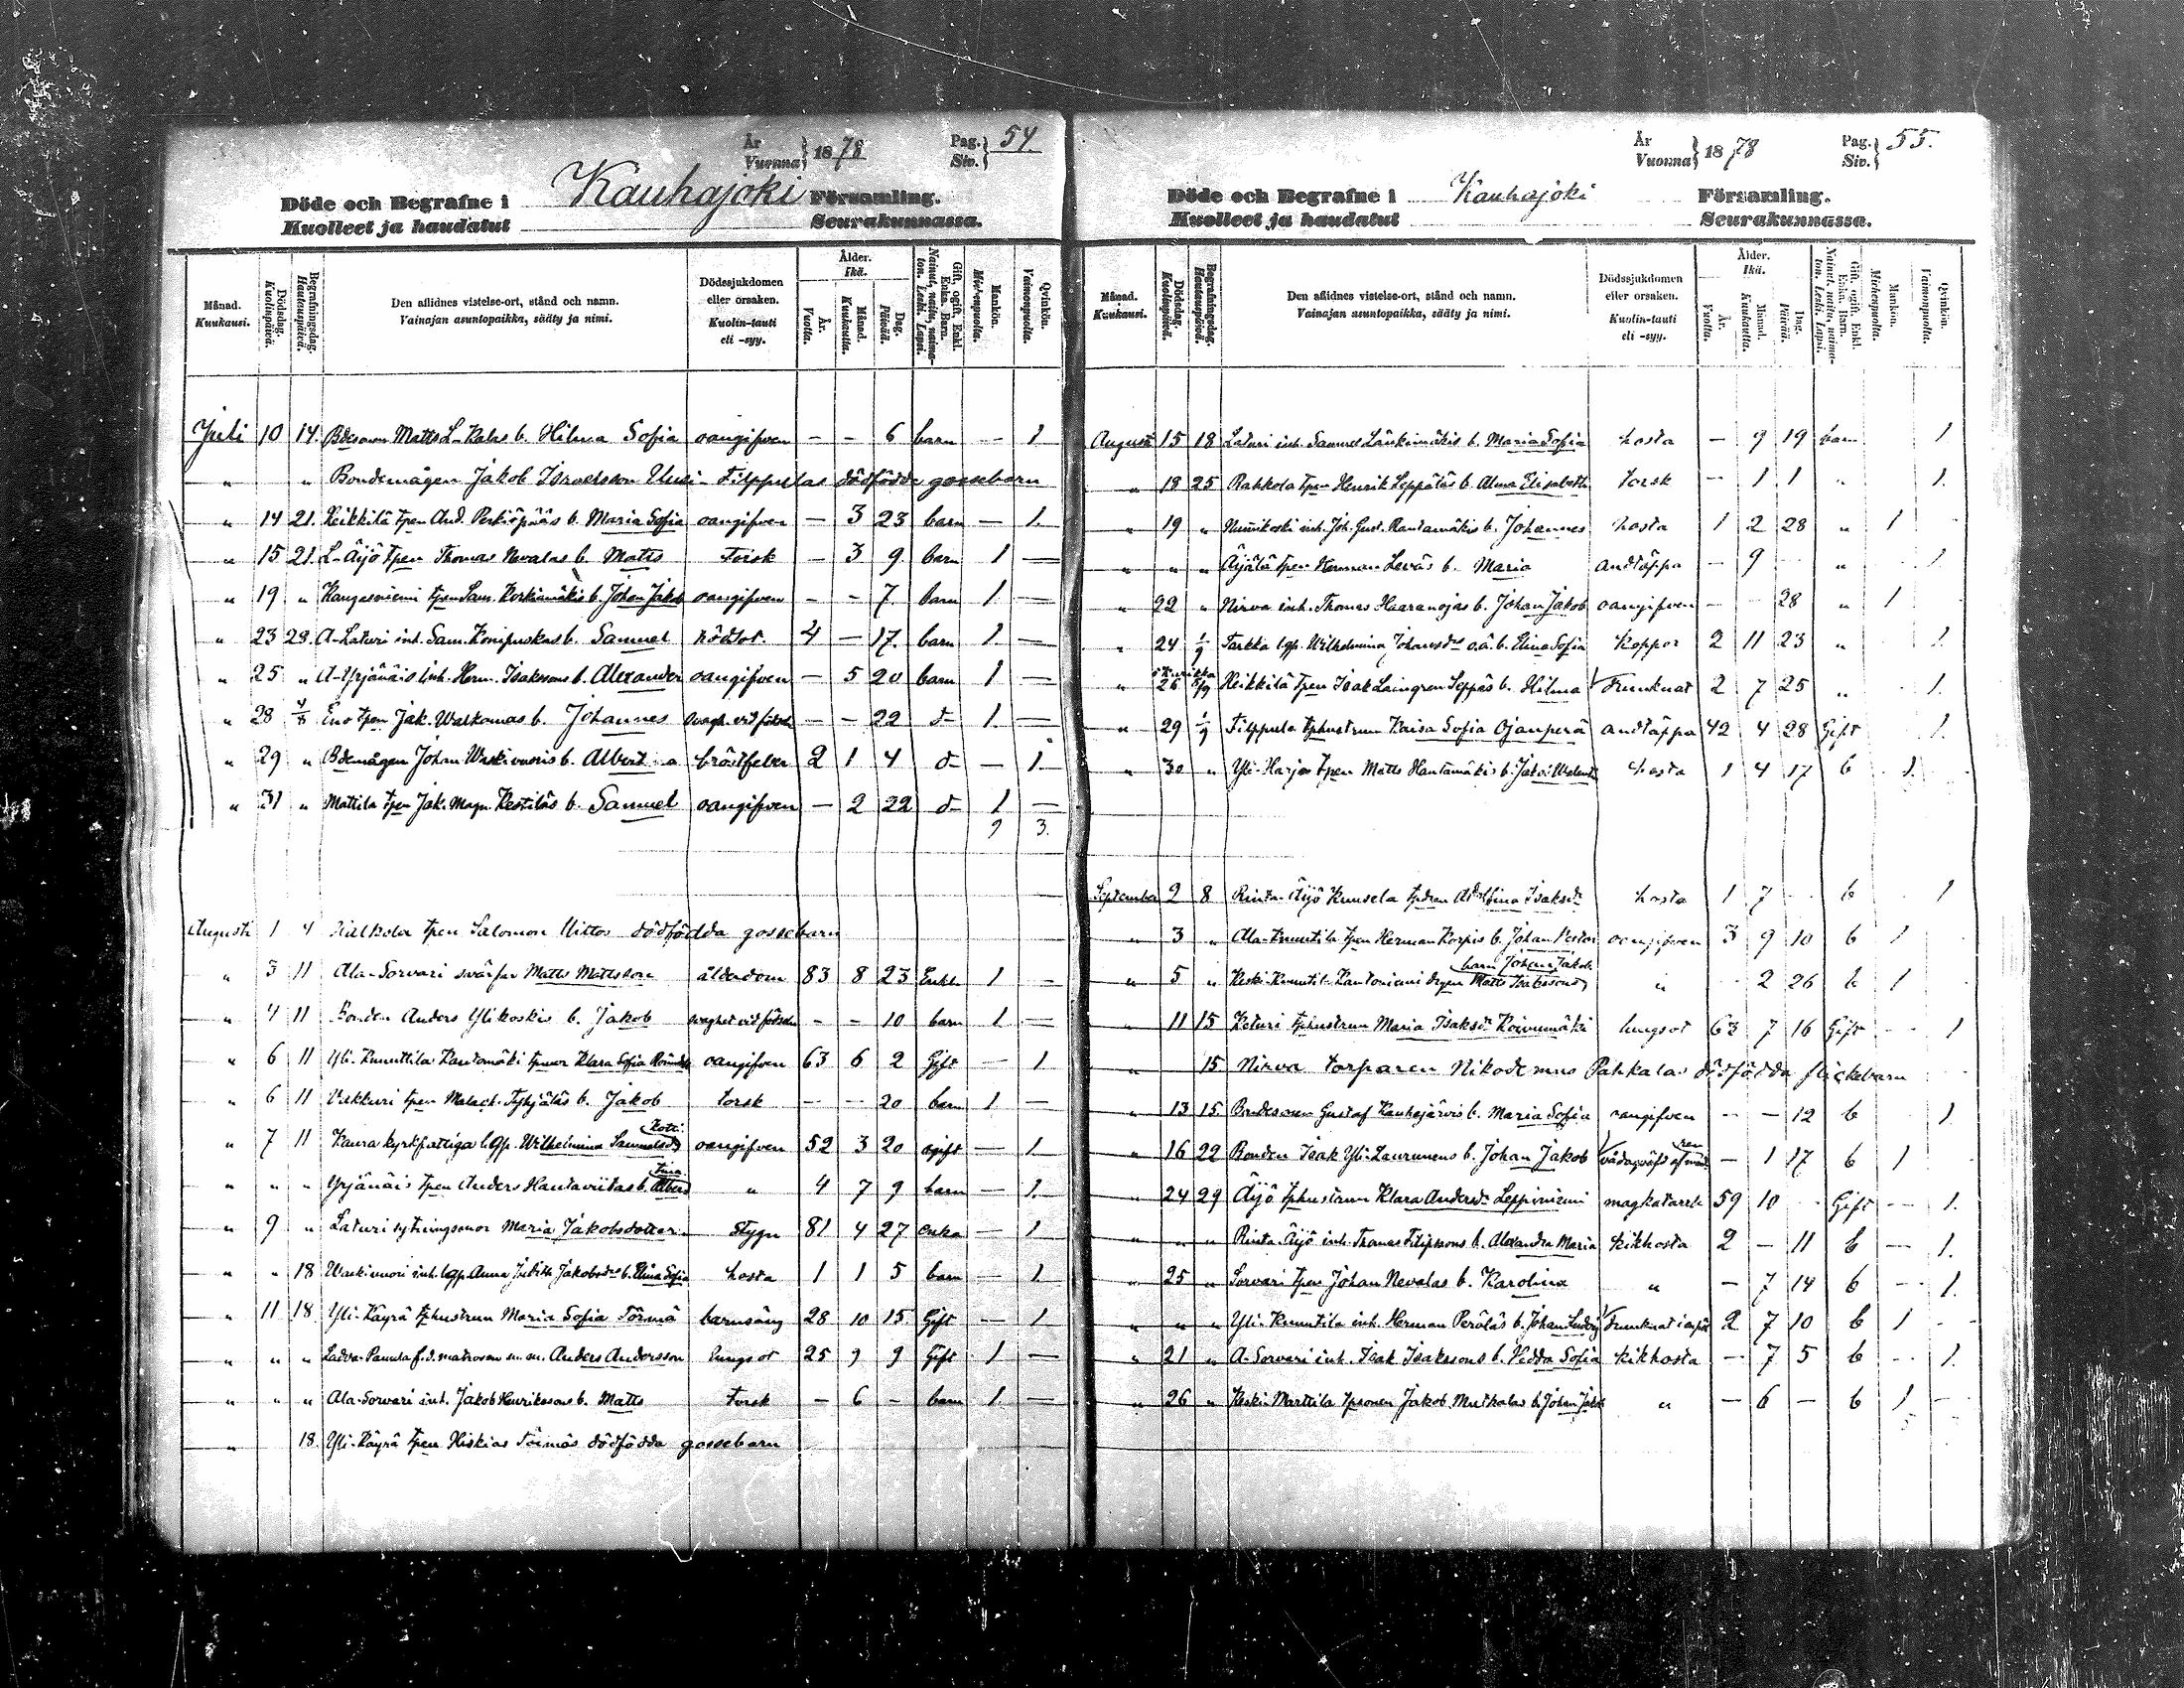 År
Vuonna} 1878 Pag.
Siv.} 54
Döde och Begrafne i Kauhajoki Församling.
Kuolleet ja haudatut Seurakunnassa.
Månad. Kuukausi. Dödsdag. Kuolinpäivä. Begrafningsdag. Hautauspäivä. Den aflidnes vistelse-ort, stånd och namn. Vainajan asuntopaikka, sääty ja nimi. Dödssjukdomen eller orsaken. Kuolin-tauti eli -syy. Ålder. Ikä. År. Vuotta. Månad. Kuukautta. Dag. Päivää. Gift, ogift, Enkl. Enka. Barn. Nainut, naitu, naimaton. Leski. Lapsi. Mankön. Miehenpuolta. Qvinkön. Vaimonpuolta.
Juli 10 14. Bdesonen Matts L-Kalas b. Hilma Sofia oangifven – – 6 barn – 1
" " Bondemågen Jakob Israelsson Uusi-Filppulas dödfödde gossebarn
" 14 21. Keikkilä tpen And. Perkiöpääs b. Maria Sofia oangifven – 3 23 barn – 1.
" 15 21. L-Äijö tpen Thomas Nevalas b. Matts Torsk – 3 9 barn 1 –
" 19 " Kangasniemi tpen Sam. Korkiamäkis b. Johan Jakob oangifven – – 7. barn 1. –
" 23 28. A-Laturi inh. Sam. b. Samuel rödsot. 4 – 17. barn 1. –
" 25 " A-Yrjänäis inh. Herm. Isakssons b. Alexander oangifven – 5 20 barn 1 –
" 28 4/8 Eno tpen Jak. Walkamas b. Johannes svagh. vid födseln – – 22 d– 1. –
" 29 " Bdemågen Johan Waskivuoris b. Albert a bröstfeber 2 1 4 d– – 1.
" 31 " Mattila tpen Jak. Magn. Kestiläs b. Samuel oangifven – 2 22 d– 1 –
9 3.
Augusti 1 4 tpen Salomon dödfödda gossebarn
" 3 11 Ala-Sorvari svärfar Matts Mattsson ålderdom 83 8 23 Enkl. 1 –
" 4 11 Bonden Anders Ylikoskis b. Jakob svaghet vid födseln – – 10 barn 1. –
" 6 11 Yli-Knuuttila Kantomäki Klara Sofia oangifven 63 6 2 Gift – 1
" 6 11 Vakkuri tpen Malach. Tyhjäläs b. Jakob torsk – – 20 barn 1 –
" 7 11 Kaura kyrkfattiga lösp. Wilhelmina Samuelsdr oangifven 52 3 20 ogift – 1.
" " " Yrjänäis tpen Anders Hautaviitas b. " 4 7 9 barn – 1.
" 9 " Laturi sytningsmor Maria Jakobsdotter Stygn 81 4 27 enka – 1
" " 18 Waskivuori inh. lösp. Anna Judith Jakobsdrs b. Elina Sofia hosta 1 1 5 barn – 1
" 11 18 Yli-Käyrä tphustrun Maria Sofia Törmä barnsäng 28 10 15 Gift – 1
" " " Ladva-Panula f.d. matrosen m.m. Anders Andersson lungsot 25 9 9 Gift 1 –
" " " Ala-Sorvari inh. Jakob Henrikssons b. Matts Torsk – 6 – barn 1. –
" 18. Yli-Käyrä tpen Hiskias Törmäs dödfödda gossebarn
År
Vuonna} 1878 Pag.
Siv.} 55.
Döde och Begrafne i Kauhajoki Församling.
Kuolleet ja haudatut Seurakunnassa.
Månad. Kuukausi. Dödsdag. Kuolinpäivä. Begrafningsdag. Hautauspäivä. Den aflidnes vistelse-ort, stånd och namn. Vainajan asuntopaikka, sääty ja nimi. Dödssjukdomen eller orsaken. Kuolin-tauti eli -syy. Ålder. Ikä. År. Vuotta. Månad. Kuukautta. Dag. Päivää. Gift, ogift, Enkl. Enka. Barn. Nainut, naitu, naimaton. Leski. Lapsi. Mankön. Miehenpuolta. Qvinkön. Vaimonpuolta.
Augusti 15 18 Laturi inh. Samuel Länkimäkis b. Maria Sofia hosta – 9 19 barn 1
" 18 25 Rahkola tpen Henrik Leppäläs b. Alma Elisabeth torsk – 1 1 " 1.
" 19 " Nummikoski inh. Joh. Gust. Rantamäkis b. Johannes hosta 1 2 28 " 1
" " " Äijälä tpen Herman Leväs b. Maria andtäppa – 9 " 1
" 22 " Nirva inh. Thomas Haaranojas b. Johan Jakob oangifven – 28 " 1
" 24 1/9 Tarkka lösp. Wilhelmina Johansdrs o.ä. b. Elina Sofia Koppor 2 11 23 " 1.
" 26 8/9 Keikkilä tpen Isak Laingren Seppäs b. Hilma Drunknat 2 7 25 " 1.
" 29 1/9 Filppula tphustrun Kaisa Sofia Ojanperä andtäppa 42 4 28 Gift 1.
" 30 " Yli-Harja tpen Matts Hautamäkis b. hosta 1 4 17 b 1.
September 2 8 Rinta-Äijö Kuusela Adolfina Isaksdr hosta 1 7 b 1
" 3 " Ala-Knuutila tpen Herman Korpis b. Johan Nestor oangifven 3 9 10 b 1
" 5 " Keski-Knuutila Kantoniemi Matts Isakssons barn Johan Jakob " 2 26 b 1
" 11 15 Keturi tphustrun Maria Isaksdr Koivumäki lungsot 63 7 16 Gift – 1
" 15 Nirva torparen Nikodemus Pahkalas dödfödda flickebarn
" 13 15 Bondesonen Gustaf Kauhajärvis b. Maria Sofia oangifven – – 12 b 1.
" 16 22 Bonden Isak Yli-Laurunens b. Johan Jakob vådaqväfd af modren – 1 17 b 1
" 24 29 Äijö tphustrun Klara Andersdr Leppiniemi magkatarrh 59 10 Gift – 1.
" " " Rinta-Äijö inh. Thomas Filipssons b. Alexandra Maria kikhosta 2 – 11 b – 1.
" 25 " Sorvari tpen Johan Nevalas b. Karolina " – 7 14 b – 1.
" " " Yli-Knuutila inh. Herman Peräläs b. Johan Ludvig Drunknat 2 7 10 b 1 –
" 21 " A-Sorvari inh. Isak Isakssons b. Hedda Sofia kikhosta – 7 5 b – 1.
" 26 " Keski-Marttila tpsonen Jakob Mutkalas b. Johan Jakob " – 6 – b 1 –